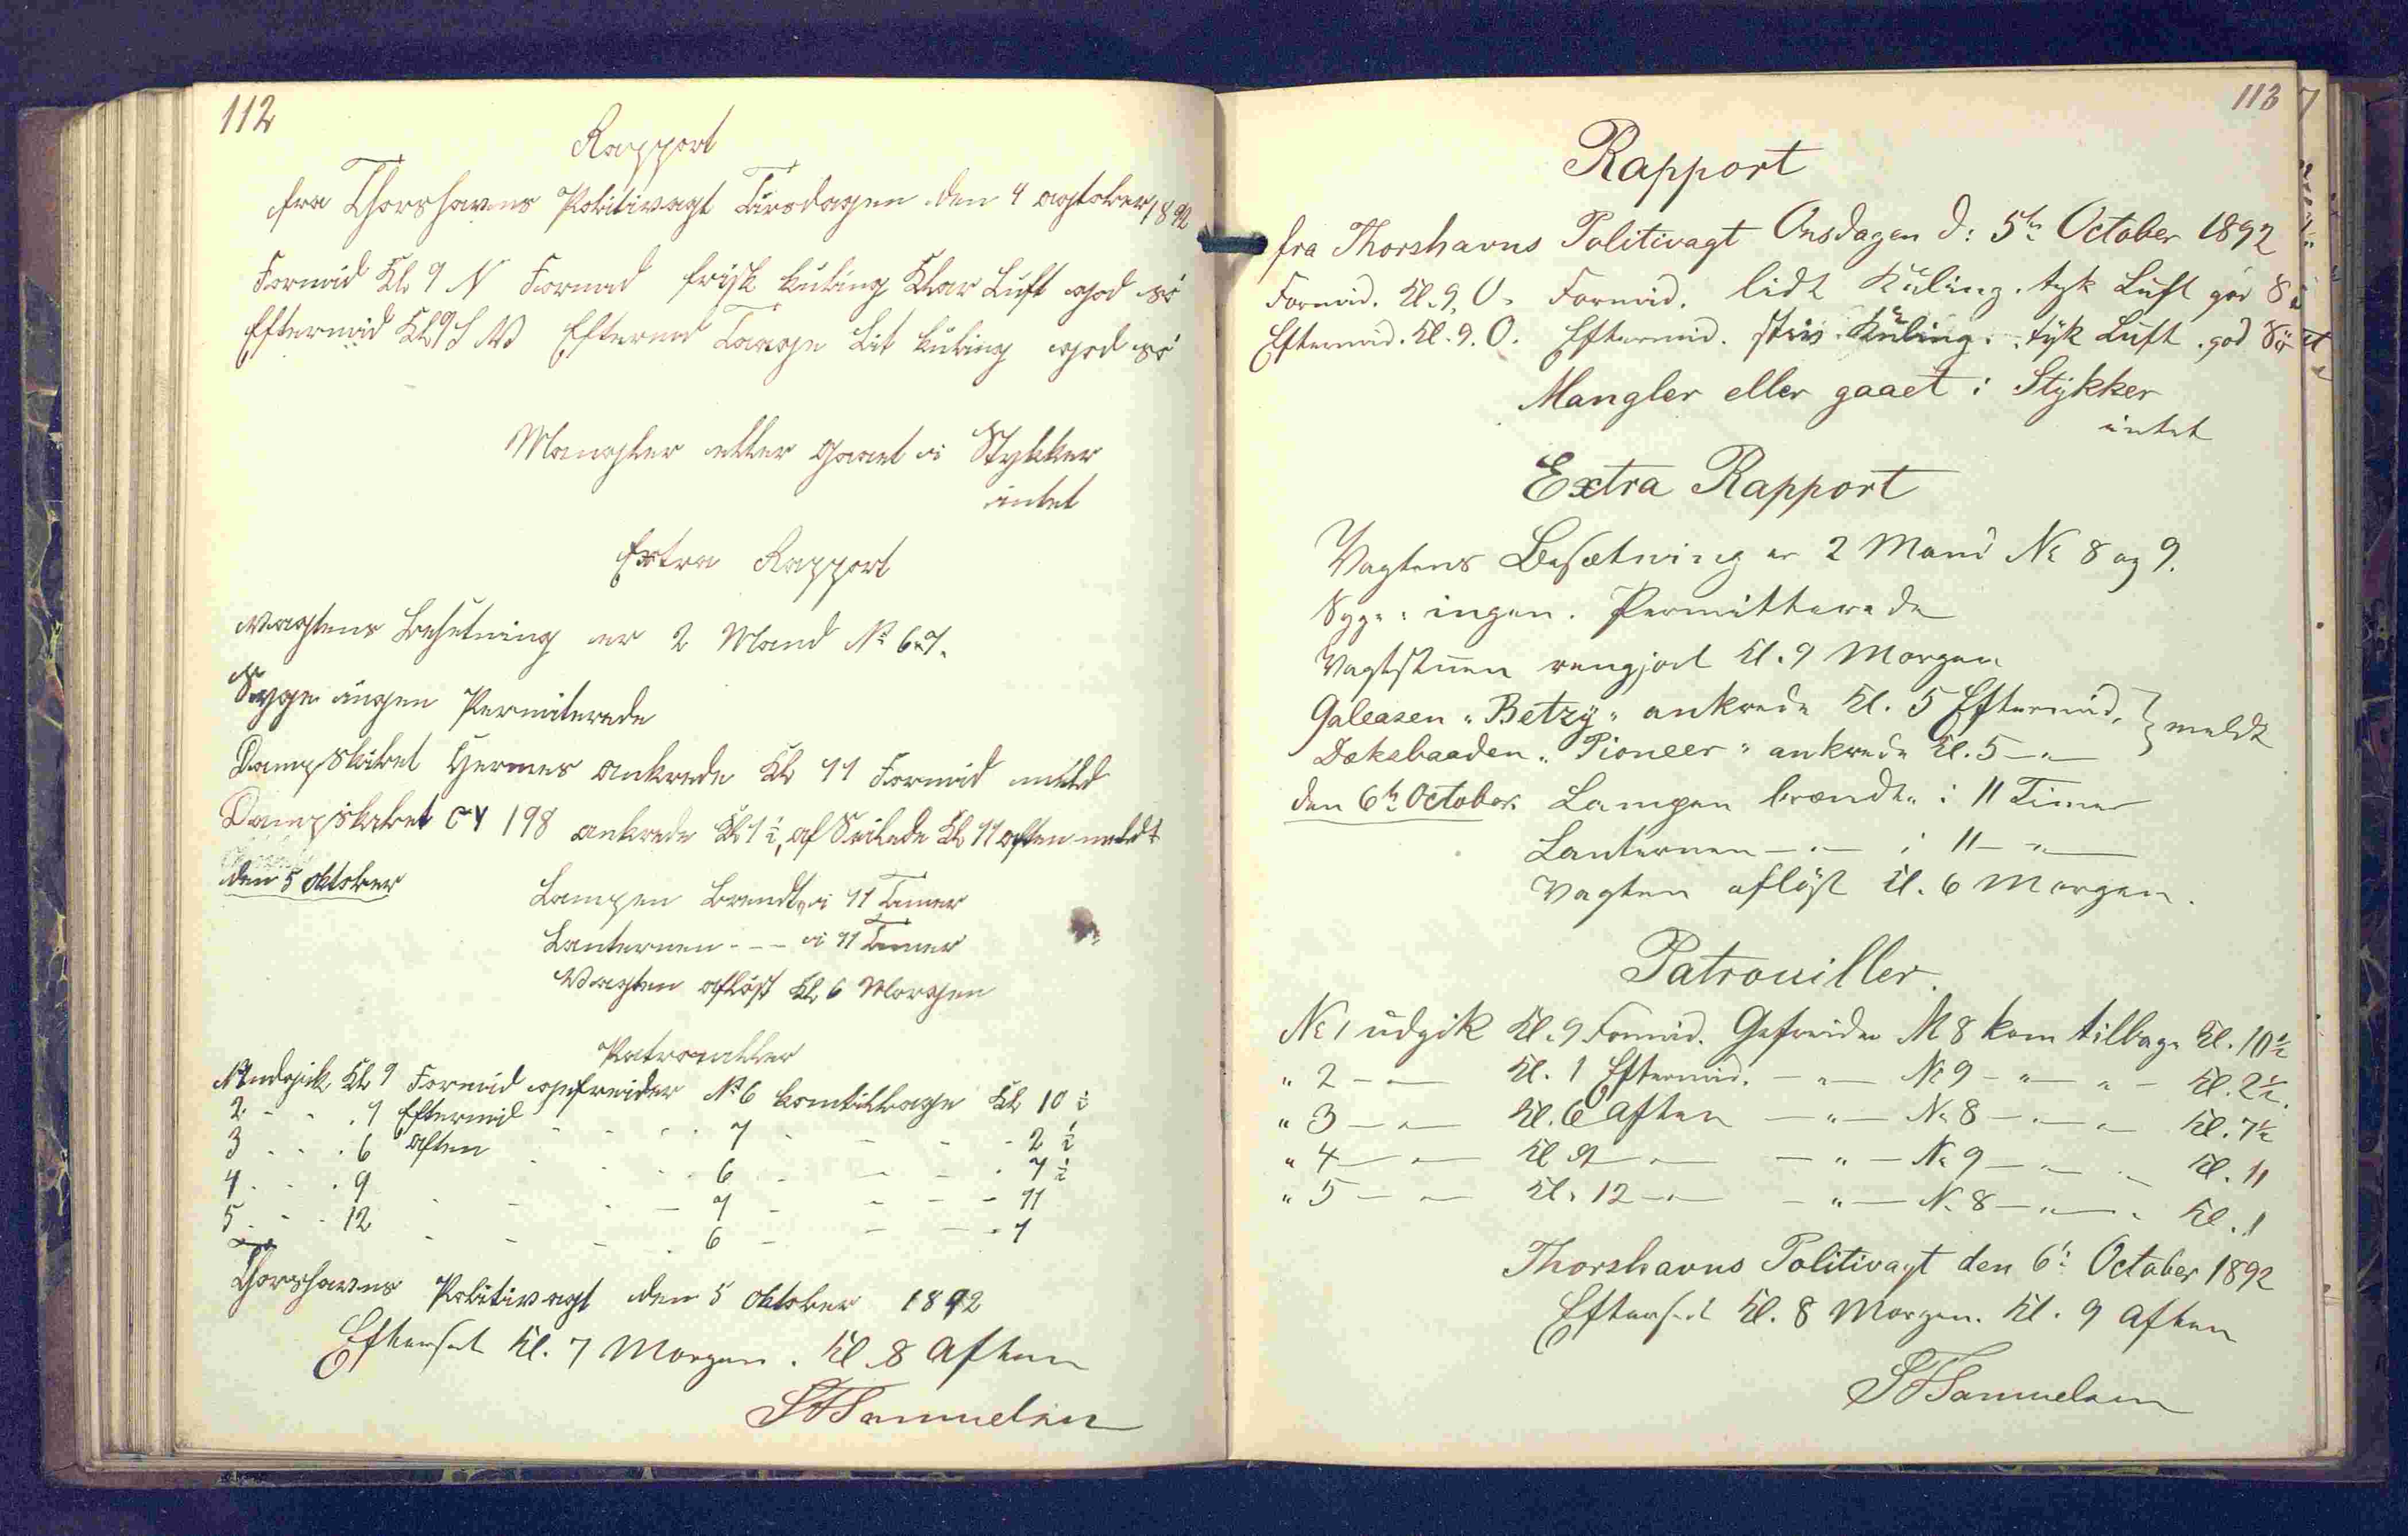 112
Rapport
fra Thorshavns Politivagt Tirsdagen den 4 ogtober 1892
Formid Kl 9 N Formid frisk kuling Klar Luft god sö
Eftermid Kl 9 S V Eftermid Taage Lit kuling god sö
Mangler eller gaaet i Stykker
intet
Extra Rapport
vagtens besetning er 2 Mand No 6-7.
Syge ingen Permiterede
Dampskibet Hermes ankrede Kl 11 Formid meld
Dampskibet 198 ankrede Kl 1½, af Seilede Kl 11 aften meldt
den 5 oktober
Lampen brendte i 11 Timer
Lanternen - - - i 11 Timer
Vagten aflöst Kl 6 Morgen
Patrouiller
No 1 udgik Kl 9 Formid gefreider No 6 kom tilbage Kl 10½
2 - - . 1 Eftermid - - . . 7 - - - - 2½
3 . . . 6 aften - . . 6 . . - - . 7½
4 . . . 9 - - . - 7 - - - - 11
5 . - . 12 - - - . 6 - - - . 1
Thorshavns Politivagt den 5 oktober 1892
Efterset Kl. 7 Morgen. Kl. 8 Aften
SFSamuelsen
113
Rapport
fra Thorshavns Politivagt Onsdagen d: 5te October 1892
Formid. Kl. 9, O. Formid. lidt Kuling. tyk Luft god Sö
Eftermid. Kl. 9. O. Eftermid. stiv Kuling. tyk Luft. god Sö
Mangler eller gaaet i Stykker
intet
Extra Rapport
Vagtens Besætning er 2 Mand No 8 og 9.
Syge: ingen. Permitterede
Vagtstuen rengjort Kl. 9 Morgen
Galeasen "Betzy" ankrede Kl. 5 Eftermid. } meldt
Dæksbaaden "Pioneer" ankrede Kl. 5 — " —
den 6te October. Lampen brændte i 11 Timer
Lanternen — " — i 11 — " —
Vagten aflöst Kl. 6 Morgen.
Patrouiller.
No 1 udgik Kl. 9 Formid. Gefreider No 8 kom tilbage Kl. 10½
" 2 — " — Kl. 1 Eftermid. — " — No 9 — " — " — Kl. 2½.
" 3 — " — Kl. 6 Aften — " — No 8 — " — " — Kl. 7½
" 4 — " — Kl. 9 — " — — " — No 9 — " — " — Kl. 11
" 5 — " — Kl. 12 — " — — " — No 8 — " — " — Kl. 1
Thorshavns Politivagt den 6te October 1892
Efterset Kl. 8 Morgen. Kl. 9 Aften
SFSamuelsen